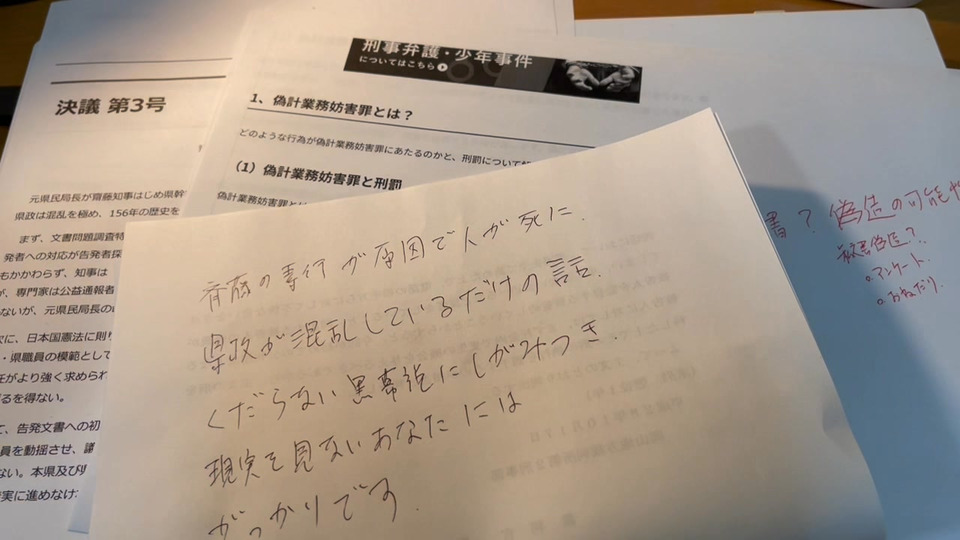 決議 第3号
元県民局長が齋藤知事はじめ県幹
県政は混乱を極め、156年の歴史を
まず、文書問題調査特
発者への対応が告発者探
もかかわらず、知事は
が、専門家は公益通報者
ないが、元県民局長の
次に、日本国憲法に則り
・県職員の模範として
任がより強く求められ
るを得ない。
て、告発文書への初
員を動揺させ、議
ない。本県及び
実に進めなけ
刑事弁護・少年事件
についてはこちら
1、偽計業務妨害罪とは？
どのような行為が偽計業務妨害罪にあたるのかと、刑罰について
(1) 偽計業務妨害罪と刑罰
偽計業務妨害罪とは
斉藤の素行が原因で人が死に、
県政が混乱しているだけの話。
くだらない黒幕説にしがみつき、
現実を見ないあなたには
がっかりです。
書？偽造の可能性
被害偽造？
。アンケート
。おねだり